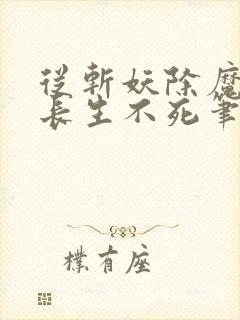 從斬妖除魔
長生不死筆
樸有座